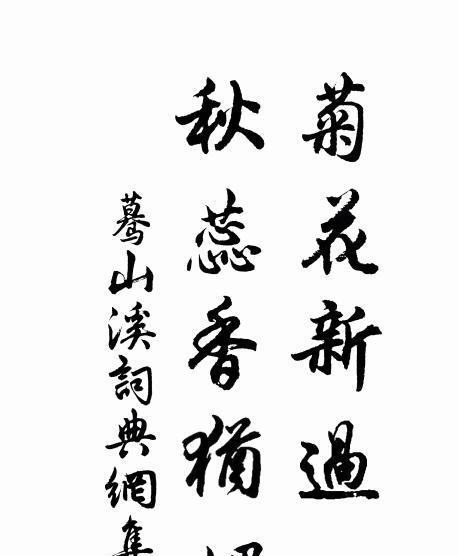 菊花新過
秋蕊香猶
蓦山溪詞典網集